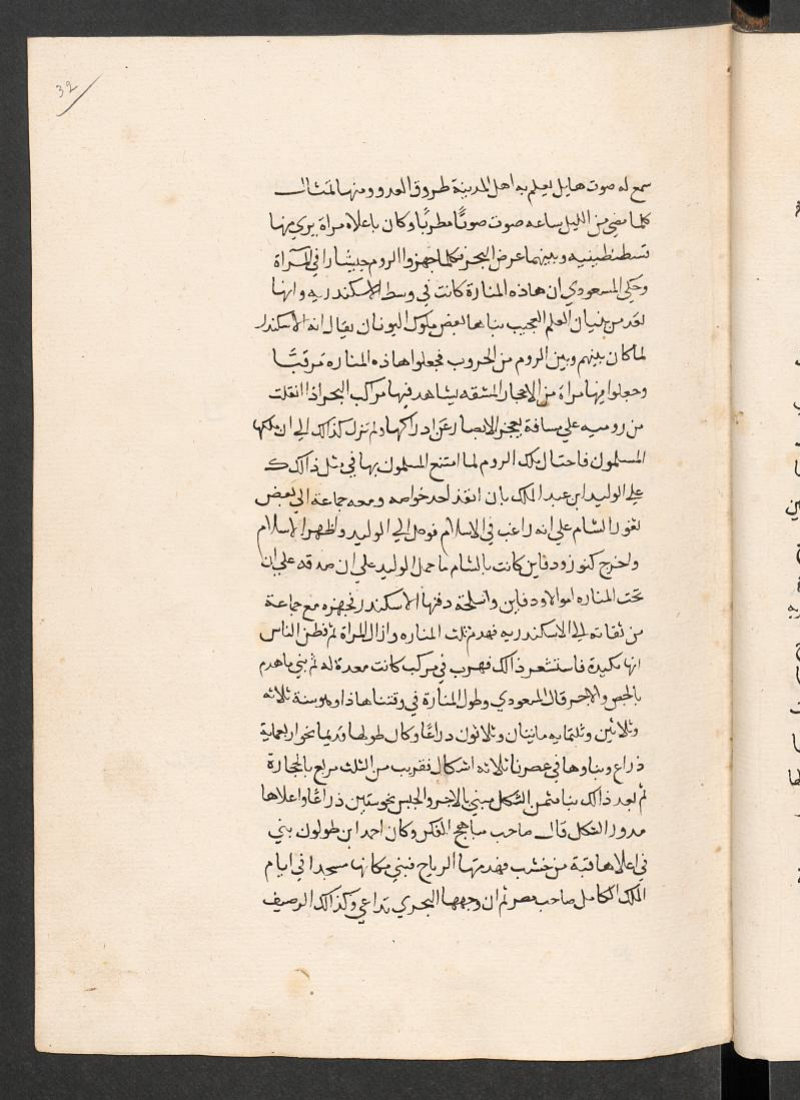 32
سمع له صوت هايل يعلم به اهل المدينة طروق العدو ومنها تمثال
كلما مضي من الليل ساعه صوت صوتًا مطربًا وكان باعلاه مراة يري منها
قسطنطينيه وبينهما عرض البحر فكلما جهزوا الروم جيشا را في المرآة
وحكي المسعودي ان هاذه المنارة كانت في وسط الاسكندريه وانها
تعد من بنيان العلم العجيب بناها بعض ملوك اليونان يقال انه الاسكندر
لما كان بينهم وبين الروم من الحروب فجعلوا هاذه المناره مرقبًا
وجعلوا فيها مراة من الاحجار المشقه يشاهد فيها مركب البحر اذا اقلت
من روميه علي مسافة يعجز الابصار عن ادراكها ولم تزل كذالك الي ان ملكها
المسلمون فاحتال ملك الروم لما امتنع المسلمون بها في مثل ذالك
علي الوليد ابن عبد الملك بان انفذ احد خواصه ومعه جماعة الي بعض
ثغور الشام علي انه راغب في الاسلام فوصل الي الوليد واظهر الاسلام
واخرج كنوز ودفاين كانت بالشام ما حمل الوليد علي ان صدقه علي ان
تحت المناره اموالا ودفاين واسلحة دفنها الاسكندر فجهزه مع جماعة
من ثقاته الي الاسكندريه فهدم ثلث المناره وازال المراة ثم فطن الناس
انها مكيدة فاستشعر ذالك فهرب في مركب كانت معدة له ثم بني ما هدم
بالجص والاجر قال المسعودي وطول المنارة في وقتنا هاذا وهو سنة ثلاثه
وثلاثين وثلثمايه مايتان وثلاثون دراعًا وكان طولها قديما نحو اربعماية
ذراع وبناوها في عصرنا ثلاثه اشكال فقريب من الثلث مربع بالحجارة
ثم بعد ذالك بنا مثمن الشكل مبني بالاجر والجبس نحو ستين ذراعًا واعلاها
مدور الشكل قال صاحب مباهج الفكر وكان احمد ابن طولون بني
في اعلاها قبة من خشب فهدمتها الرياح فبني مكانها مسجدا في ايام
الملك الكامل صاحب مصر ثم ان وجهها البحري تداعي وكذالك الرصيف